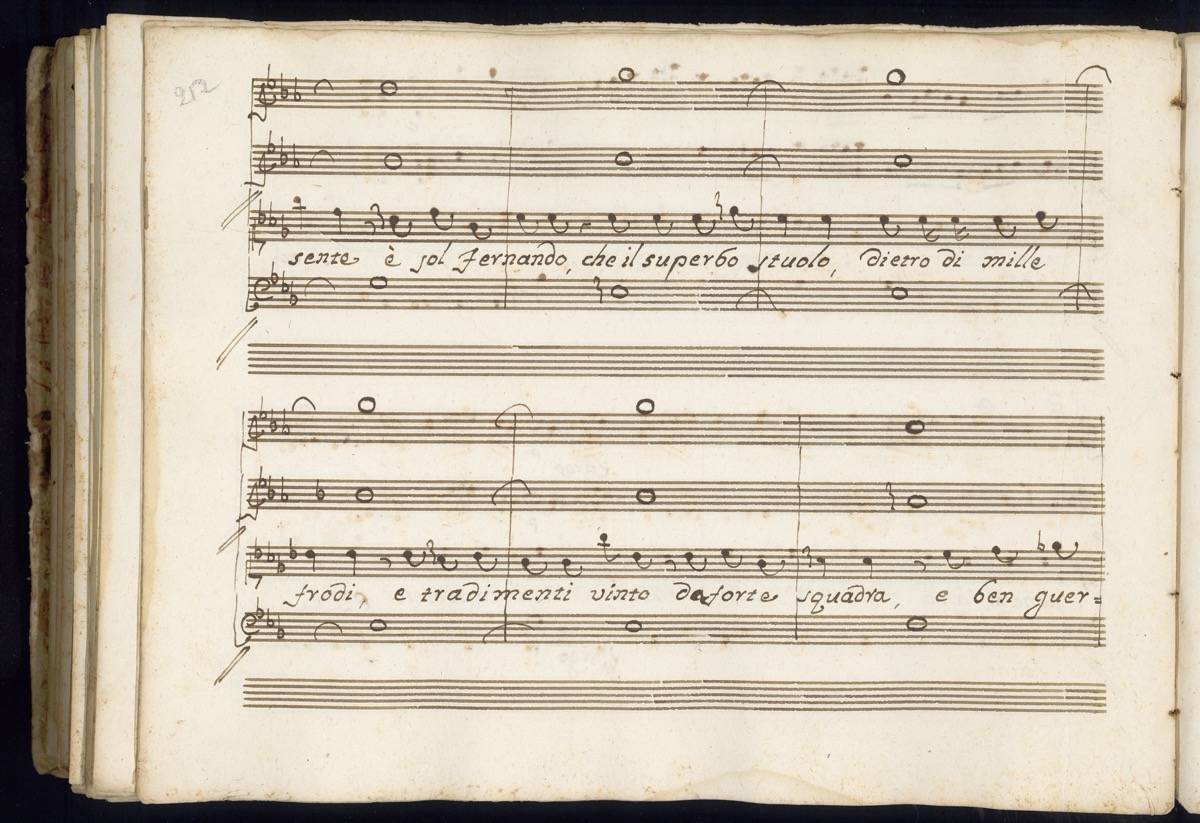 212
sente è sol Fernando, che il superbo stuolo, dietro di mille
frodi, e tradimenti vinto da forte squadra, e ben guer=